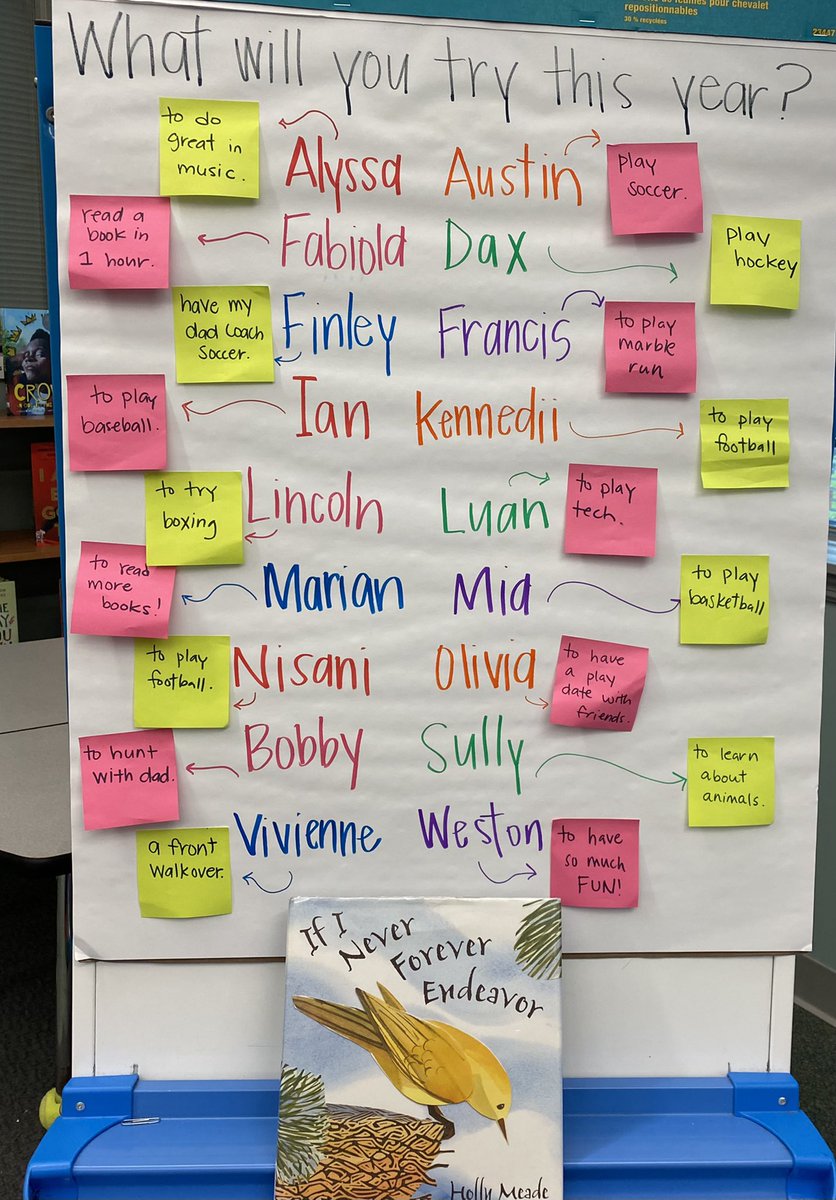 de feuilles pour chevalet
repositionnables
30 % recyclées
23447
What will you try this year?
to do
great in
music.
Alyssa
Austin
play
soccer.
read a
book in
1 hour.
Fabiola
Dax
play
hockey
have my
dad coach
soccer.
Finley
Francis
to play
marble
run
to play
baseball.
Ian
Kennedii
to play
football
to try
boxing
Lincoln
Luan
to play
tech.
to read
more
books!
Marian
Mia
to play
basketball
to play
football.
Nisani
Olivia
to have
a play
date with
friends.
to hunt
with dad.
Bobby
Sully
to learn
about
animals.
a front
walkover.
Vivienne
Weston
to have
so much
FUN!
If I
Never
Forever
Endeavor
Holly Meade